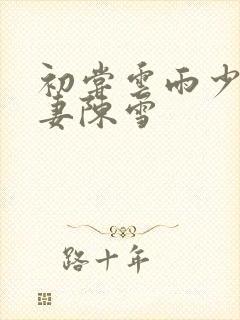 初尝雲雨少
妻陳雪
路十年